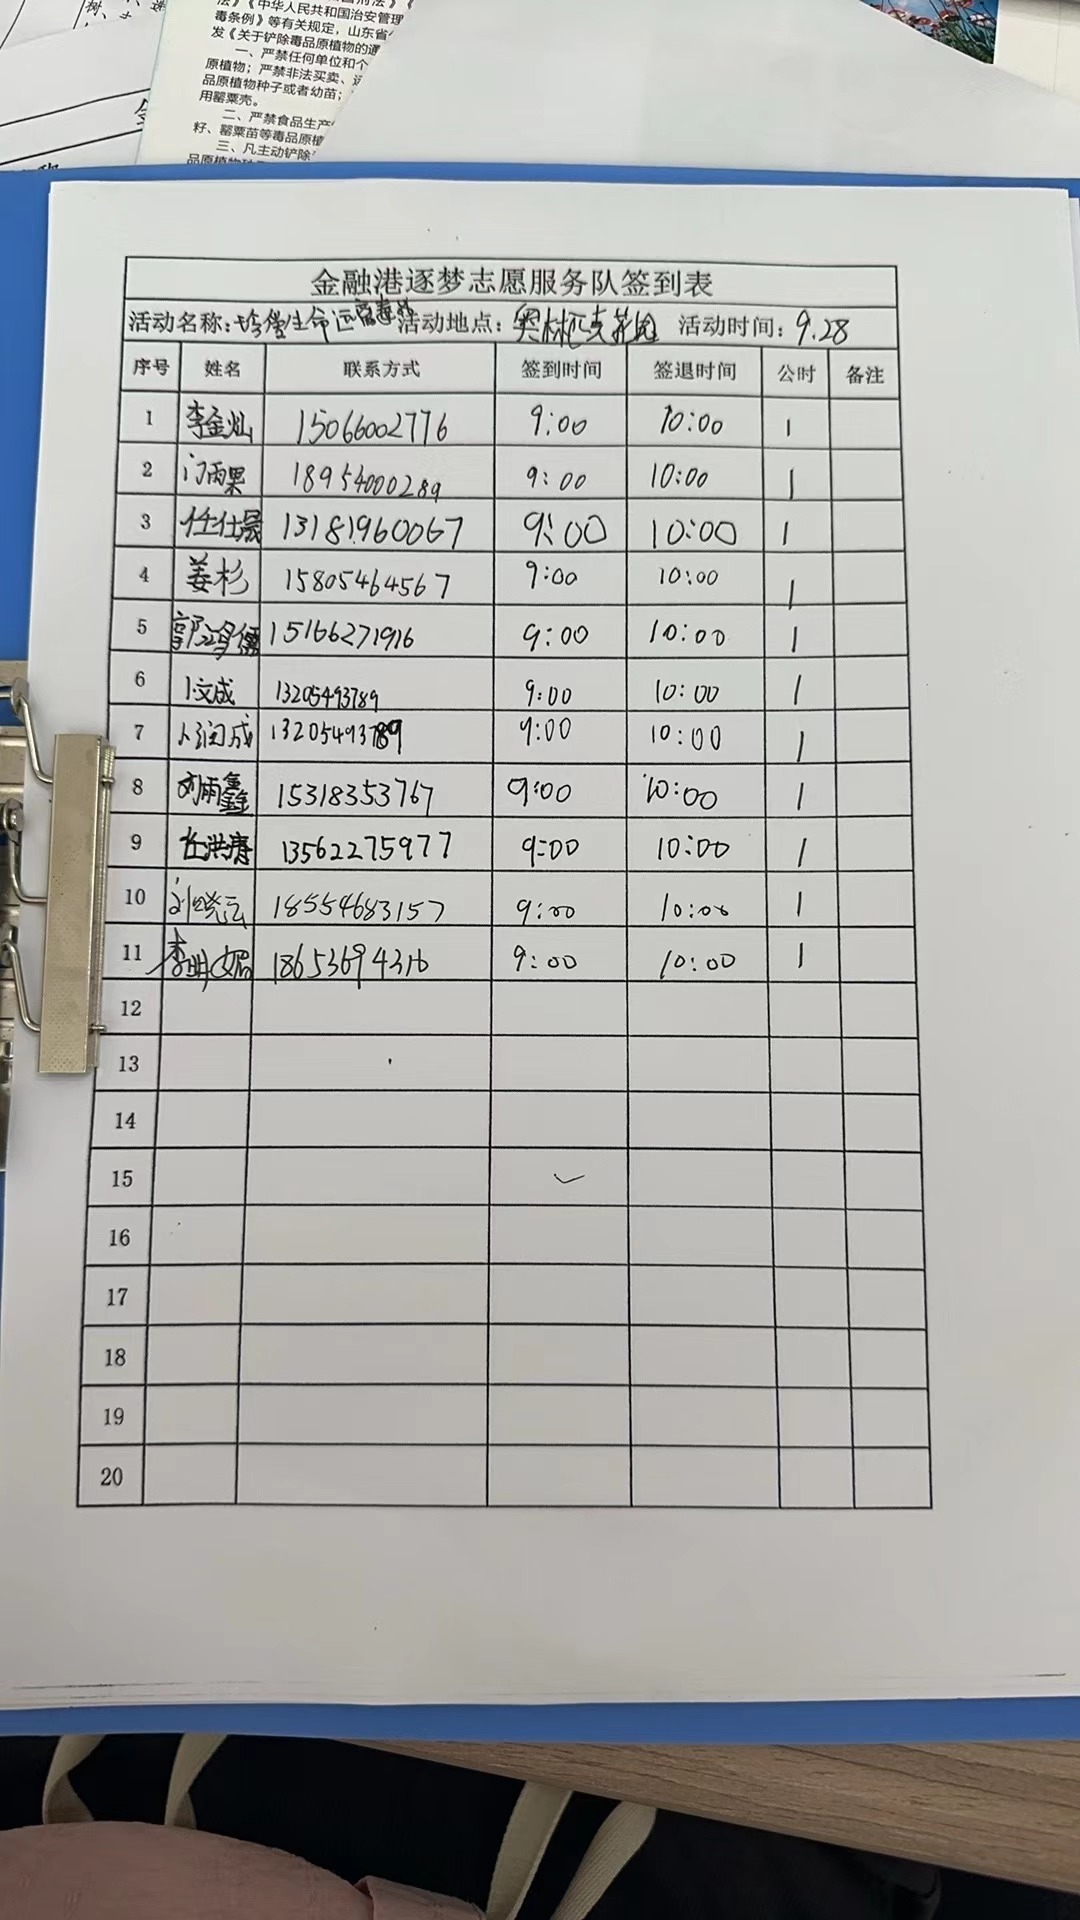 法》《中华人民共和国治安管理
毒条例》等有关规定，山东省
发《关于铲除毒品原植物的通
一、严禁任何单位和个
原植物；严禁非法买卖、运
品原植物种子或者幼苗；
用罂粟壳。
二、严禁食品生产
籽、罂粟苗等毒品原植
三、凡主动铲除
金融港逐梦志愿服务队签到表
活动名称：珍爱生命远离毒品 活动地点：奥林匹克花园 活动时间：9.28
序号 姓名 联系方式 签到时间 签退时间 公时 备注
1 李金灿 15066002776 9:00 10:00 1
2 门雨果 18954000289 9:00 10:00 1
3 任仕晟 13181960067 9:00 10:00 1
4 姜杉 15805464567 9:00 10:00 1
5 郭鸿儒 15166271916 9:00 10:00 1
6 卜文成 13205493789 9:00 10:00 1
7 卜润成 13205493789 9:00 10:00 1
8 刘雨鑫 15318353767 9:00 10:00 1
9 杜洪春 13562275977 9:00 10:00 1
10 刘晓云 18554683157 9:00 10:00 1
11 李明媚 18653694316 9:00 10:00 1
12
13
14
15
16
17
18
19
20